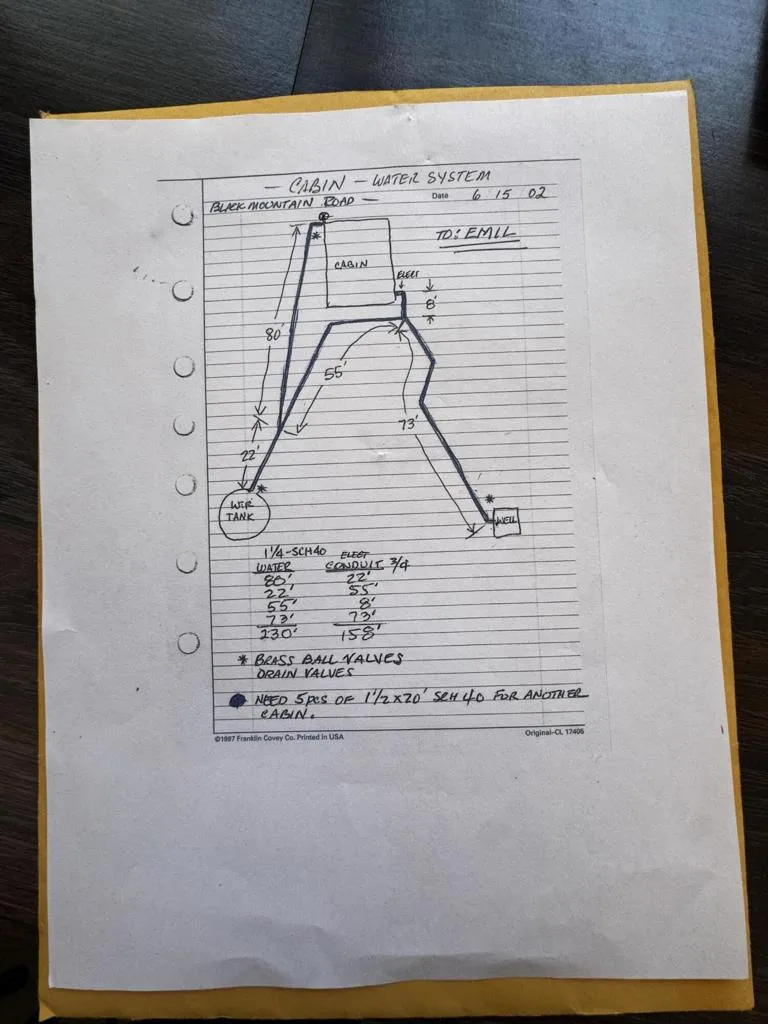 — CABIN — WATER SYSTEM
BLACK MOUNTAIN ROAD —
Date 6 15 02
TO: EMIL
CABIN
ELECT
8'
80'
55'
73'
22'
WTR
TANK
WELL
1 1/4 - SCH 40 ELECT
WATER CONDUIT 3/4
80' 22'
22' 55'
55' 8'
73' 73'
230' 158'
* BRASS BALL VALVES
DRAIN VALVES
● NEED 5 PCS OF 1 1/2 X 20' SCH 40 FOR ANOTHER
CABIN.
©1997 Franklin Covey Co. Printed in USA Original-CL 17406